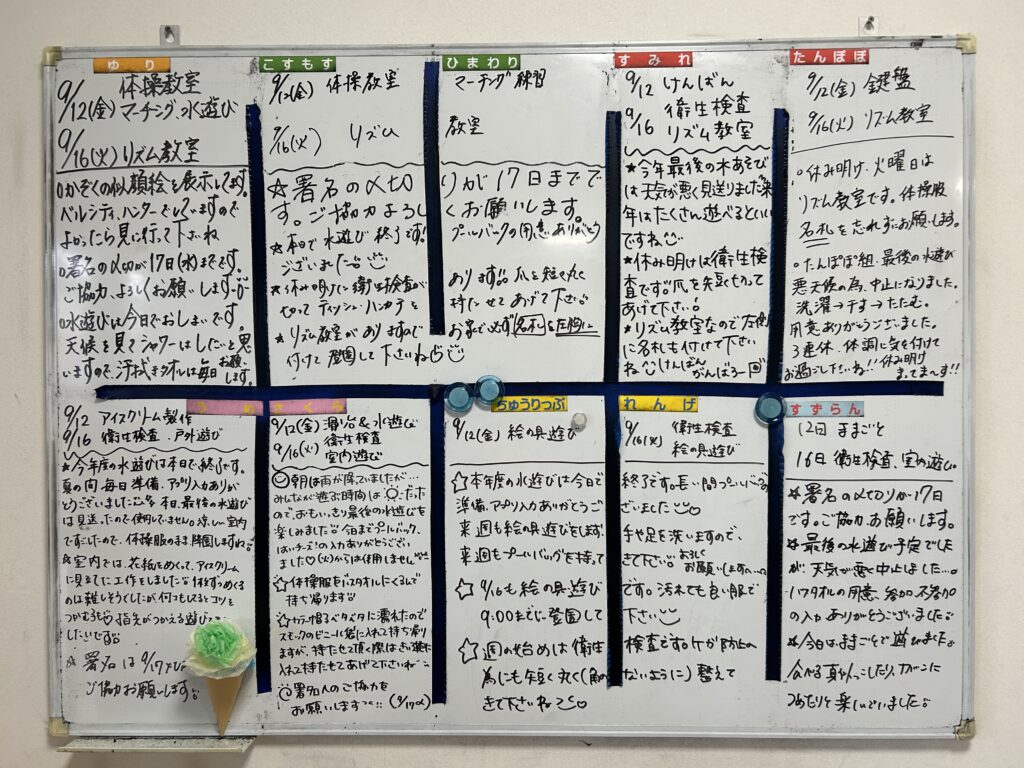 ゆり
体操教室
9/12(金) マーチング、水遊び
9/16(火) リズム教室
○かぞくの似顔絵を表示してます。
ベルシティ、ハンターでしていますので
よかったら見に行って下さいね
○署名の〆切が17日(水)までです。
ご協力、よろしくお願いします
○水遊びは今日でおしまいです。
天候を見てシャワーはしたいと思
いますので、汗拭きタオルは毎日お願いします。
こすもす
9/12(金) 体操教室
9/16(火) リズム
ひまわり
マーチング練習
教室
☆署名の〆切りが17日までで
す。ご協力よろしくお願いします。
★本日で水遊び終了です!!プールバックの用意、ありがとう
ございました
★休み明けに衛生検査があります!!爪を短く丸く
切ってティッシュ・ハンカチを持たせてあげて下さい
★リズム教室がありますのでお家で必ず名札を左胸に
付けて登園して下さいね
すみれ
9/12 けんばん
9/16 衛生検査
リズム教室
★今年最後の水あそび
は天気が悪く見送りました 来
年はたくさん遊べるといい
ですね
★休み明けは衛生検
査です。爪を短く切って
あげて下さい!
★リズム教室なので左側
に名札も付けて下さい
けんばん
がんばろー
たんぽぽ
9/12(金) 鍵盤
9/16(火) リズム教室
○休み明け、火曜日は
リズム教室です。体操服
名札を忘れずにお願いします。
○たんぽぽ組、最後の水遊び
悪天候の為、中止になりました。
洗濯→干す→たたむ。
用意ありがとうございました。
3連休、体調に気を付けて
お過ごし下さいね!!休み明け
まってまーす!!
うめ
9/12 アイスクリーム製作
9/16 衛生検査・戸外遊び
★今年度の水遊びは本日で終了です。
夏の間、毎日準備、アプリ入力ありが
とうございました 本日、最後の水遊び
は見送ったので使用していません。涼しい室内
ですごしたので、体操服のまま降園しますね
★室内では、花紙をめくって、アイスクリーム
に見たてた工作をしました
のは難しそうでしたが何つもしてるとコツを
つかむ子も 指先がつかえる遊び
したいです
★署名は9/17
ご協力お願いします。
さくら
9/12(金) 滑り台&水遊び
9/16(火) 衛生検査
室内遊び
朝は雨が降っていましたが…
みんなが遊ぶ時間は
ので、おもいっきり最後の水遊びを
楽しみました 今日までプールバック、
はいチーズ!の入力ありがとうござい
ました(火)からは使用しません
☆体操服をバスタオルにくるんで
持ち帰ります
スモックのビニールに一緒に入れて持ち帰り
ますが、持たせて頂く際はきんちゃく袋に
入れて持たせてあげて下さいね
署名人のご協力を
お願いします (9/17〆)
ちゅうりっぷ
9/12(金) 絵の具遊び
れんげ
9/16(火) 衛生検査
絵の具遊び
☆本年度の水遊びは今日で終了です。長い間プールバックの
準備、アプリ入力ありがとうございました
来週も絵の具遊びをします、手や足を洗いますので、
来週もプールバッグを持ってきて下さい よろしくお願いします
☆9/16も絵の具遊びです。汚れても良い服で
9:00までに登園して下さい
☆週の始めは衛生検査です。ケガ防止の
為にも短く丸く(ないように)整えて
きて下さいね
すずらん
12日 ままごと
16日 衛生検査、室内遊び。
★署名の〆切りが17日
です。ご協力、お願いします。
★最後の水遊び予定でした
が、天気が悪く中止しました…。
バスタオルの用意、参加・不参加
の入力ありがとうございました
★今日はままごとで遊びました
食べる真似っこしたり、カバンに
つめたりと楽しんでいました